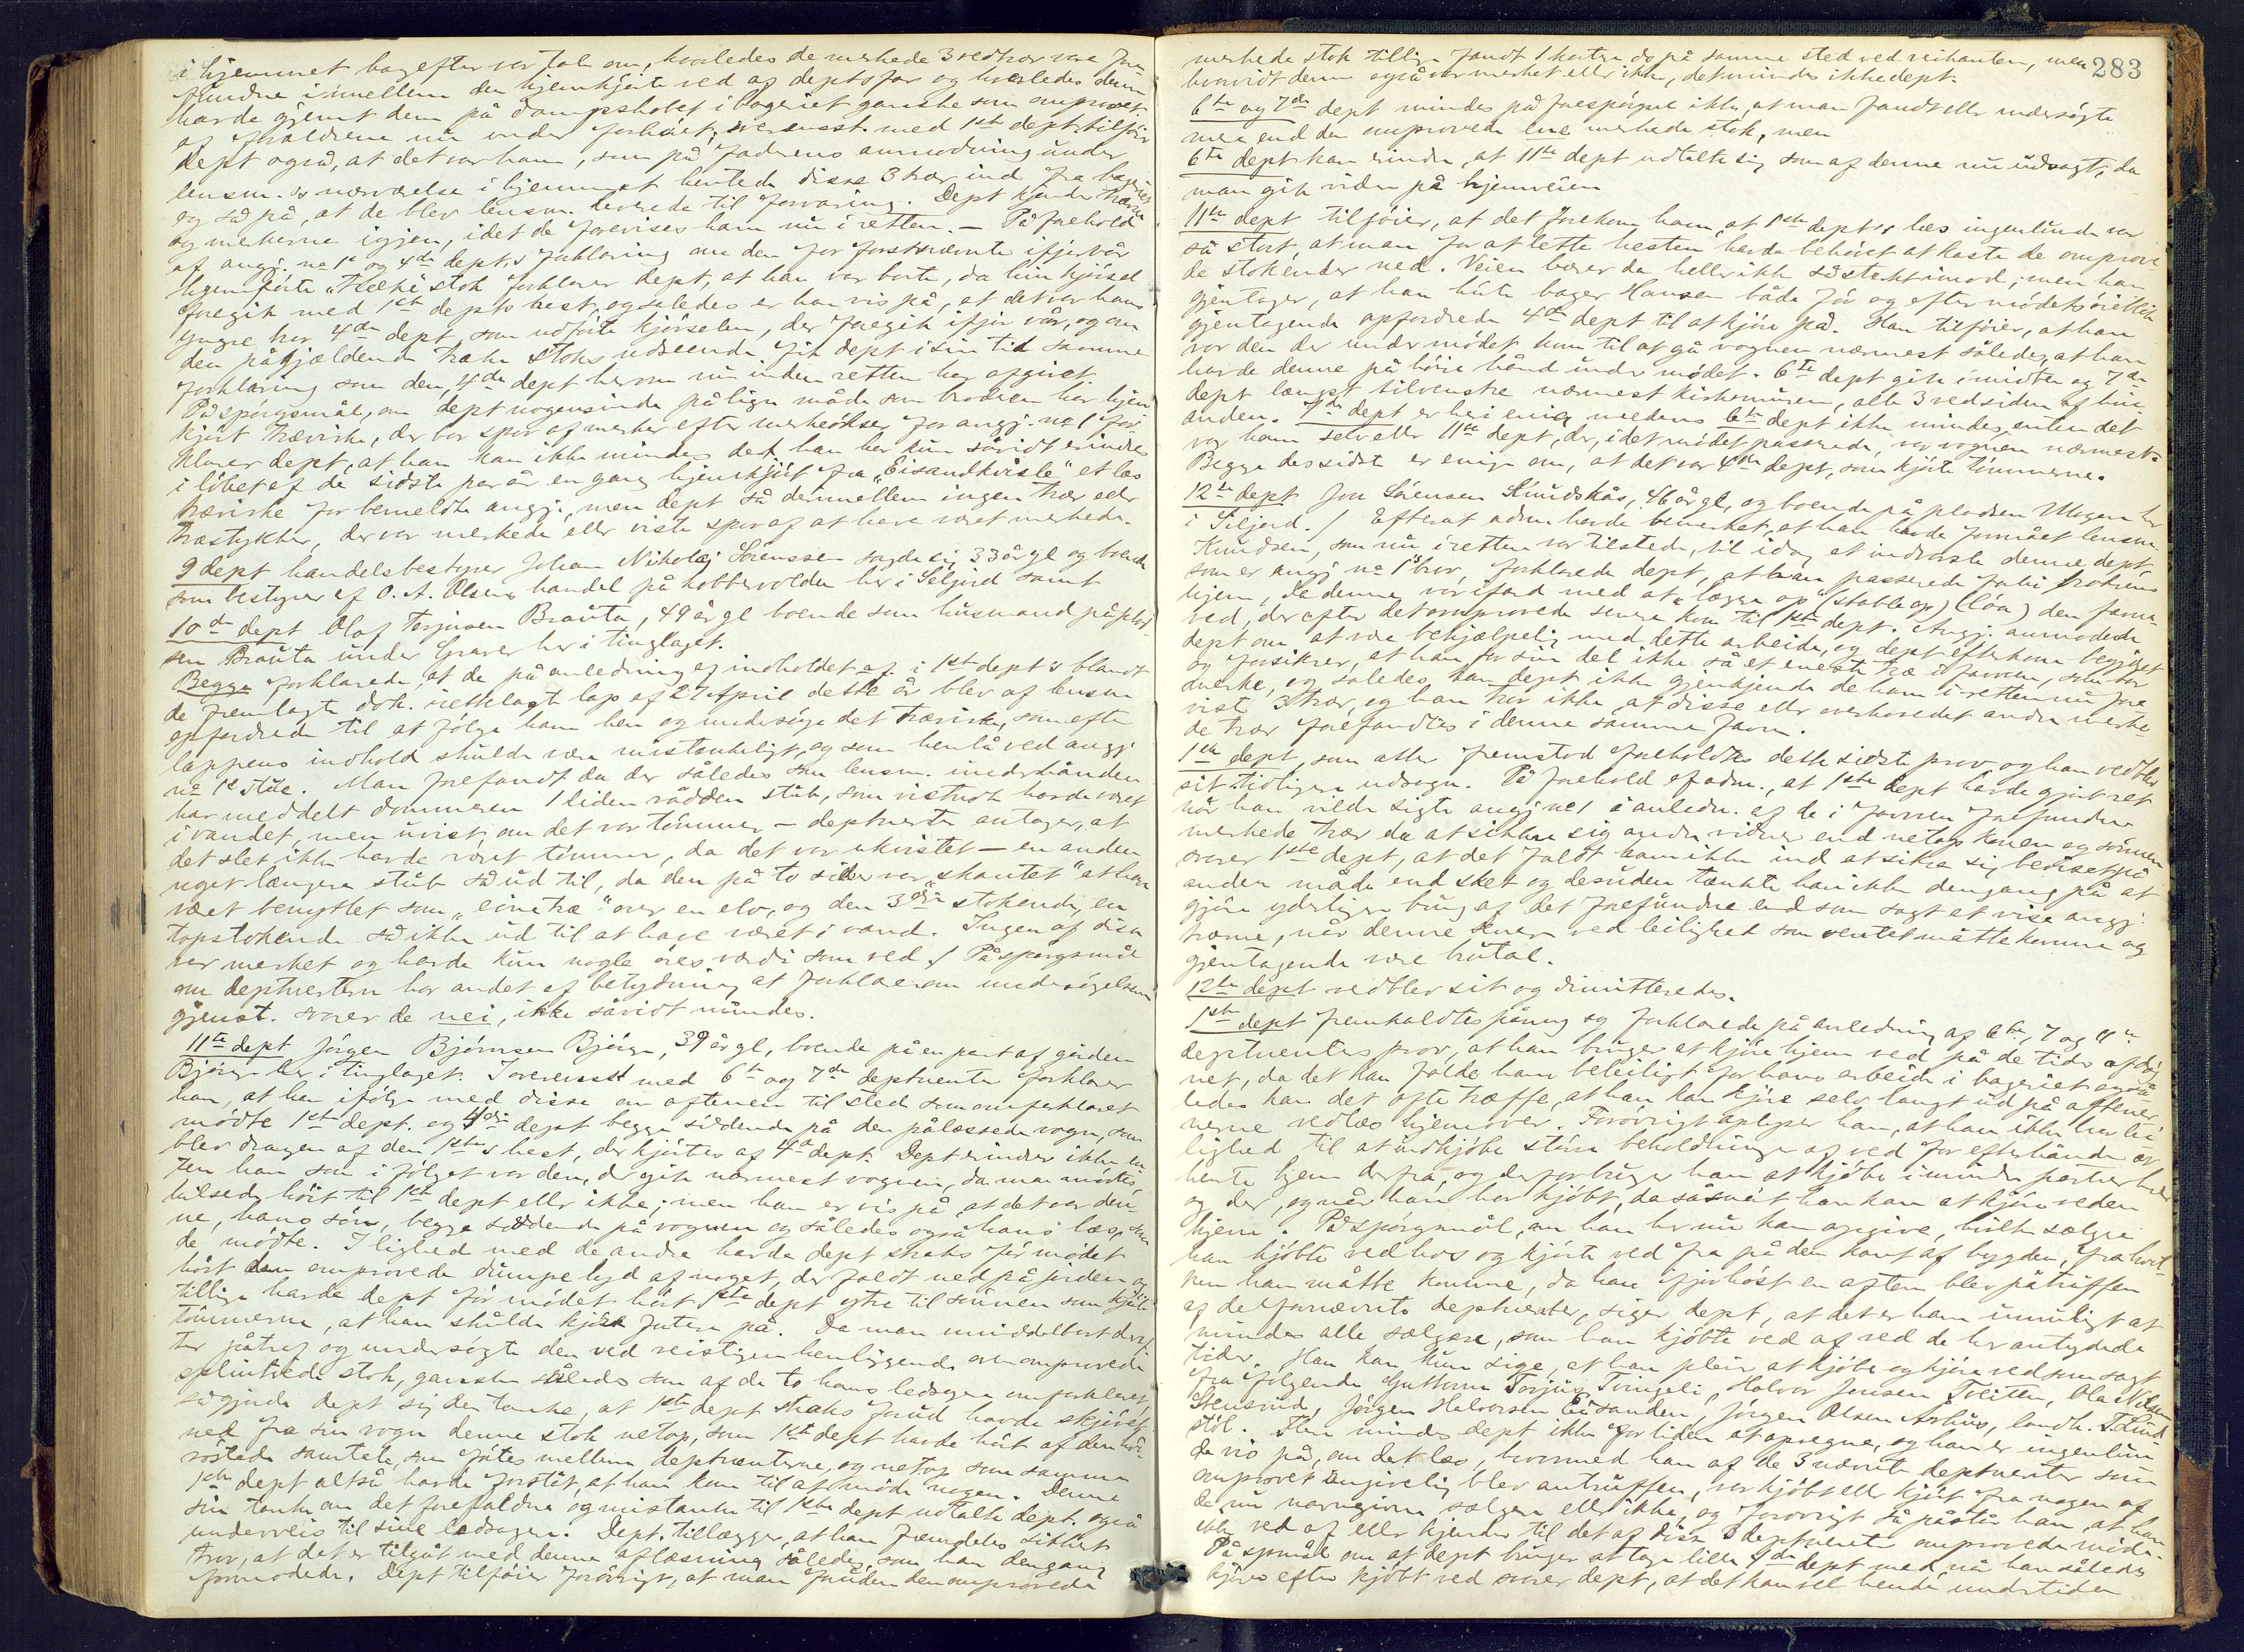 i hjemmet bagefter var tale om, hvorledes de merkede 3 vedtrær var fra
fundne imellem den hjemkjørte ved af deptsfar og hvorledes denne
havde gjemt dem på dampskabet i bageriet ganske som omprovet
af forældrene nu under forhøret, overensst. med 1ste depts tilføier
dept også, at det var ham, som på faderens anmodning under
lensm.s nærværelse i hjemmet hentede disse 3 trær ind fra bageriet
og så på, at de blev lensm. leverede til forvaring. Dept kjender trærne
og merkerne igjen, idet de forevises ham nu i retten. – På forehold
af angj. no 1s og 4de depts forklaring om den før forstnævnte ifjor vår
hjemkjørte stok forklarer dept, at han var borte, da hin kjørsel
foregik med 1ste depts hest, og således er han vis på, at det var hans
yngre bror 4de dept, som udførte kjørselen, der foregik ifjor vår, og om
den pågjældende stoks udseende fik dept i sin tid samme
forklaring som den, 4de dept herom nu inden retten har afgivet.
På spørgsmål, om dept nogensinde på lign måde som broderen har hjem-
kjørt trævirke, der bar spor af merker efter merkeøkser for angj. no 1 for-
klarer dept, at han kan ikke mindes det, han har kun såvidt erindres
i løbet af de sidste par år en gang hjemkjørt fra "Eisandkviste" et læs
trævirke for bemeldte angj., men dept så derimellem ingen trær eller
træstykker, der var merkede eller viste spor af at have været merkede.
9 dept handelsbestyrer Johan Nikolaj Sørenssen sagde sig 33 år gl og boende
som bestyrer af O. A. Olsens handel på kobbervolden her i Seljord samt
10de dept Olaf Terjusen Brauta, 49 år gl boende som husmand på plad-
sen Brauta under Graver her i tinglaget.
Begge forklarede, at de på anledning af indholdet af i 1ste dept's blandt
de fremlagte dok. irettelagt lap af 27 April dette år blev af lensm
opfordred til at følge ham hen og undersøge det trævirke, som efter
lappens indhold skulde være mistænkeligt, og som henlå ved angj.
no 1s stue. Man forefandt da der således som lensm. underhånden
har meddelt dommeren 1 liden rådden stub, som vistnok havde været
i vandet, men uvist, om det var tømmer – deptnerte antager, at
det slet ikke havde været tømmer, da det var ukvistet – en anden
noget længere stub så ud til, da den på to sider var "skantet" at have
været benyttet som "einetræ" over en elv, og den 3die stokende, en
topstokende så ikke ud til at have været i vand. Ingen af disse
var merket og havde kun nogle øres værdi som ved. / På spørgsmål
om deptnerterne har andet af betydning at forklare om undersøgelsens
gjenst. svarer de nei, ikke såvidt mindes.
11te dept Jørgen Bjørnsen Bjørge, 39 år gl, boende på en part af gården
Bjørge her i tinglaget. I overensst med 6te og 7de deptnerter forklarer
han, at han ifølge med disse om aftenen til sted som omforklaret
mødte 1ste dept. og 4de dept begge siddende på den pålæssede vogn, som
blev dragen af den 1stes hest, der kjørtes af 4de dept. Dept erindrer ikke en-
ten han som i følget var den, der gik nærmest vognen, da man mødtes,
hilsede høit til 1ste dept eller ikke; men han er vis på, at det var den-
ne, hans søn, begge siddende på vognen og således også hans læs, som
de mødte. I lighed med de andre havde dept straks før mødet
hørt den omprovede dumpe lyd af noget, der faldt ned på jorden og
tillige havde dept før mødet hørt 1ste dept ytre til sønnen som kjørte
tømmerne, at han skulde kjøre fortere på. Da man umiddelbart deref-
ter påtraf og undersøgte den ved veistigen henliggende omprovede
splintrede stok, ganske således som af de to hans ledsagere omforklaret,
så gjorde dept sig den tanke, at 1ste dept straks forud havde skjøvet
ned fra sin vogn denne stok netop, som 1ste dept havde hørt af den høi-
røstede samtale, som førtes mellem deptnenterne, og netop som samme
1ste dept altså havde forstått, at han kom til at møde nogen. Denne
sin tanke om det forefaldne og mistanke til 1ste dept udtalte dept også
underveis til sine ledsagere. Dept. tillægger, at han fremdeles sikkert
tror, at det er tilgåt med denne aflæsning således, som han dengang
formodede. Dept tilføier forøvrigt, at man foruden den omprovede
283
merkede stok tillige fandt 1 kortere do på samme sted ved veikanten, men
hvorvidt denne også var merket eller ikke, det mindes ikke dept.
6te og 7de dept mindes på forespørgsel ikke, at man fandt eller undersøgte
mere end den omprovede ene merkede stok, men
6te dept kan erindre, at 11te dept udtalte sig som af denne nu udsagt, da
man gik videre på hjemveien
11te dept tilføier, at det forekom ham, at 1ste dept's læs ingenlunde var
så stort, at man for at lette hesten havde behøvet at kaste de omprove-
de stokender ned. Veien bærer da heller ikke så sterkt imod; men han
gjentager, at han hørte bager Hansen både før og efter mødets øieblik
gjentagende opfordrede 4de dept til at kjøre på. Han tilføier, at han
var den der under mødet kom til at gå vognen nærmest således, at han
havde denne på høire hånd under mødet. 6te dept gik i midten og 7de
dept længst tilvenstre nærmest kirkemuren, alle 3 ved siden af hin-
anden. 7de dept er heri enig medens 6te dept ikke mindes, enten det
var ham selv eller 11te dept, der, idet mødet passerede, var vognen nærmest.
Begge des sidst er enige om, at det var 4de dept, som kjørte tømmerne.
12te dept Jon Sørensen Knudskås, 46 år gl, og boende på pladsen Mogen her
i Seljord. / Efterat adm. havde bemerket, at han havde formået lensm.
Knudsen, som nu i retten var tilstede, til idag at indvarsle denne dept,
som er angj no 1's bror, forklarede dept, at han passerede forbi broderens
hjem, da denne var ifærd med at "lægge op (stable op) (løa) den favne-
ved, der efter det omprovede senere kom til 1ste dept. Angj. anmodede
dept om at være behjælpelig med dette arbeide, og dept efterkom begjæret
og forsikrer, at han for sin del ikke så et eneste træ i favnen, som bar
merke, og således kan dept ikke gjenkjende de ham i retten nu fore-
vist 3 trær, og han tror ikke, at disse eller overhovedet andre merke-
de trær forefandtes i denne samme favn.
1ste dept, som atter fremstod foreholdtes dette sidste prov og han vedblev
sit tidligere udsagn. På forehold af adm., at 1ste dept havde gjort ret
når han vilde sigte angj no 1 i anledn. af de i favnen forefundne
merkede trær da at sikkre sig andre vidner end netop konen og sønnen
svarer 1ste dept, at det faldt ham ikke ind at sikre sig beviset på
anden måde end sket og desuden tænkte han ikke dengang på at
gjøre yderligere brug af det forefundne end som sagt at vise angj.
træerne, når denne ved leilighed som ventet måtte komme og
gjentagende være brutal.
12te dept vedblev sit og dimitteredes.
1ste dept fremkaldtes påny og forklarede på anledning af 6te, 7 og 11te
deptnenters prov, at han bruger at kjøre hjem ved på de tider af døg-
net, da det kan falde ham beleiligt for hans arbeide i bageriet og så-
ledes kan det ofte træffe, at han kan kjøre selv langt ud på aftener-
nerne vedlæs hjemover. Forøvrigt oplyser han, at han ikke har lei-
lighed til at indkjøbe større beholdninger af ved for efterhånden at
hente hjem derfra, og derfor bruger han at kjøbe i mindre partier her
og der, og når han har kjøbt, da såsnart han kan at kjøre veden
hjem. På spørgsmål, om han her nu kan opgive, hvilke sælgere
han kjøbte ved hos og kjørte ved fra på den kant af bygden, fra hvil-
ken han måtte komme, da han ifjor høst en aften blev påtruffen
af de fornævnte deptnenter, siger dept, at det er ham umuligt at
mindes alle sælgere, som han kjøbte ved af ved de her antydede
tider. Han kan kun sige, at han pleier at kjøbe og kjøre ved som sagt
fra følgende Guttorm Torjus. Tvingeli, Halvor Jensen Tveiten, Ola Nilsen
Stensrud, Jørgen Halvorsen Eisanden, Jørgen Olsen Århus, landh. T. Lind-
støl. Flere mindes dept ikke for tiden at opregne, og han er ingenlun-
de vis på, om det læs, hvormed han af de 3 nævnte deptnenter som
omprovet angivelig blev antruffen, var kjøbt eller kjørt fra nogen af
de nu navngivne sælgere eller ikke, og forøvrigt så påstår han, at han
ikke ved af eller kjender til det af disse 3 deptnenter omprovede møde.
På spmål om at dept bruger at tage lille 4de dept med når han således
kjører efter kjøbt ved svarer dept, at det kan vel hende undertiden